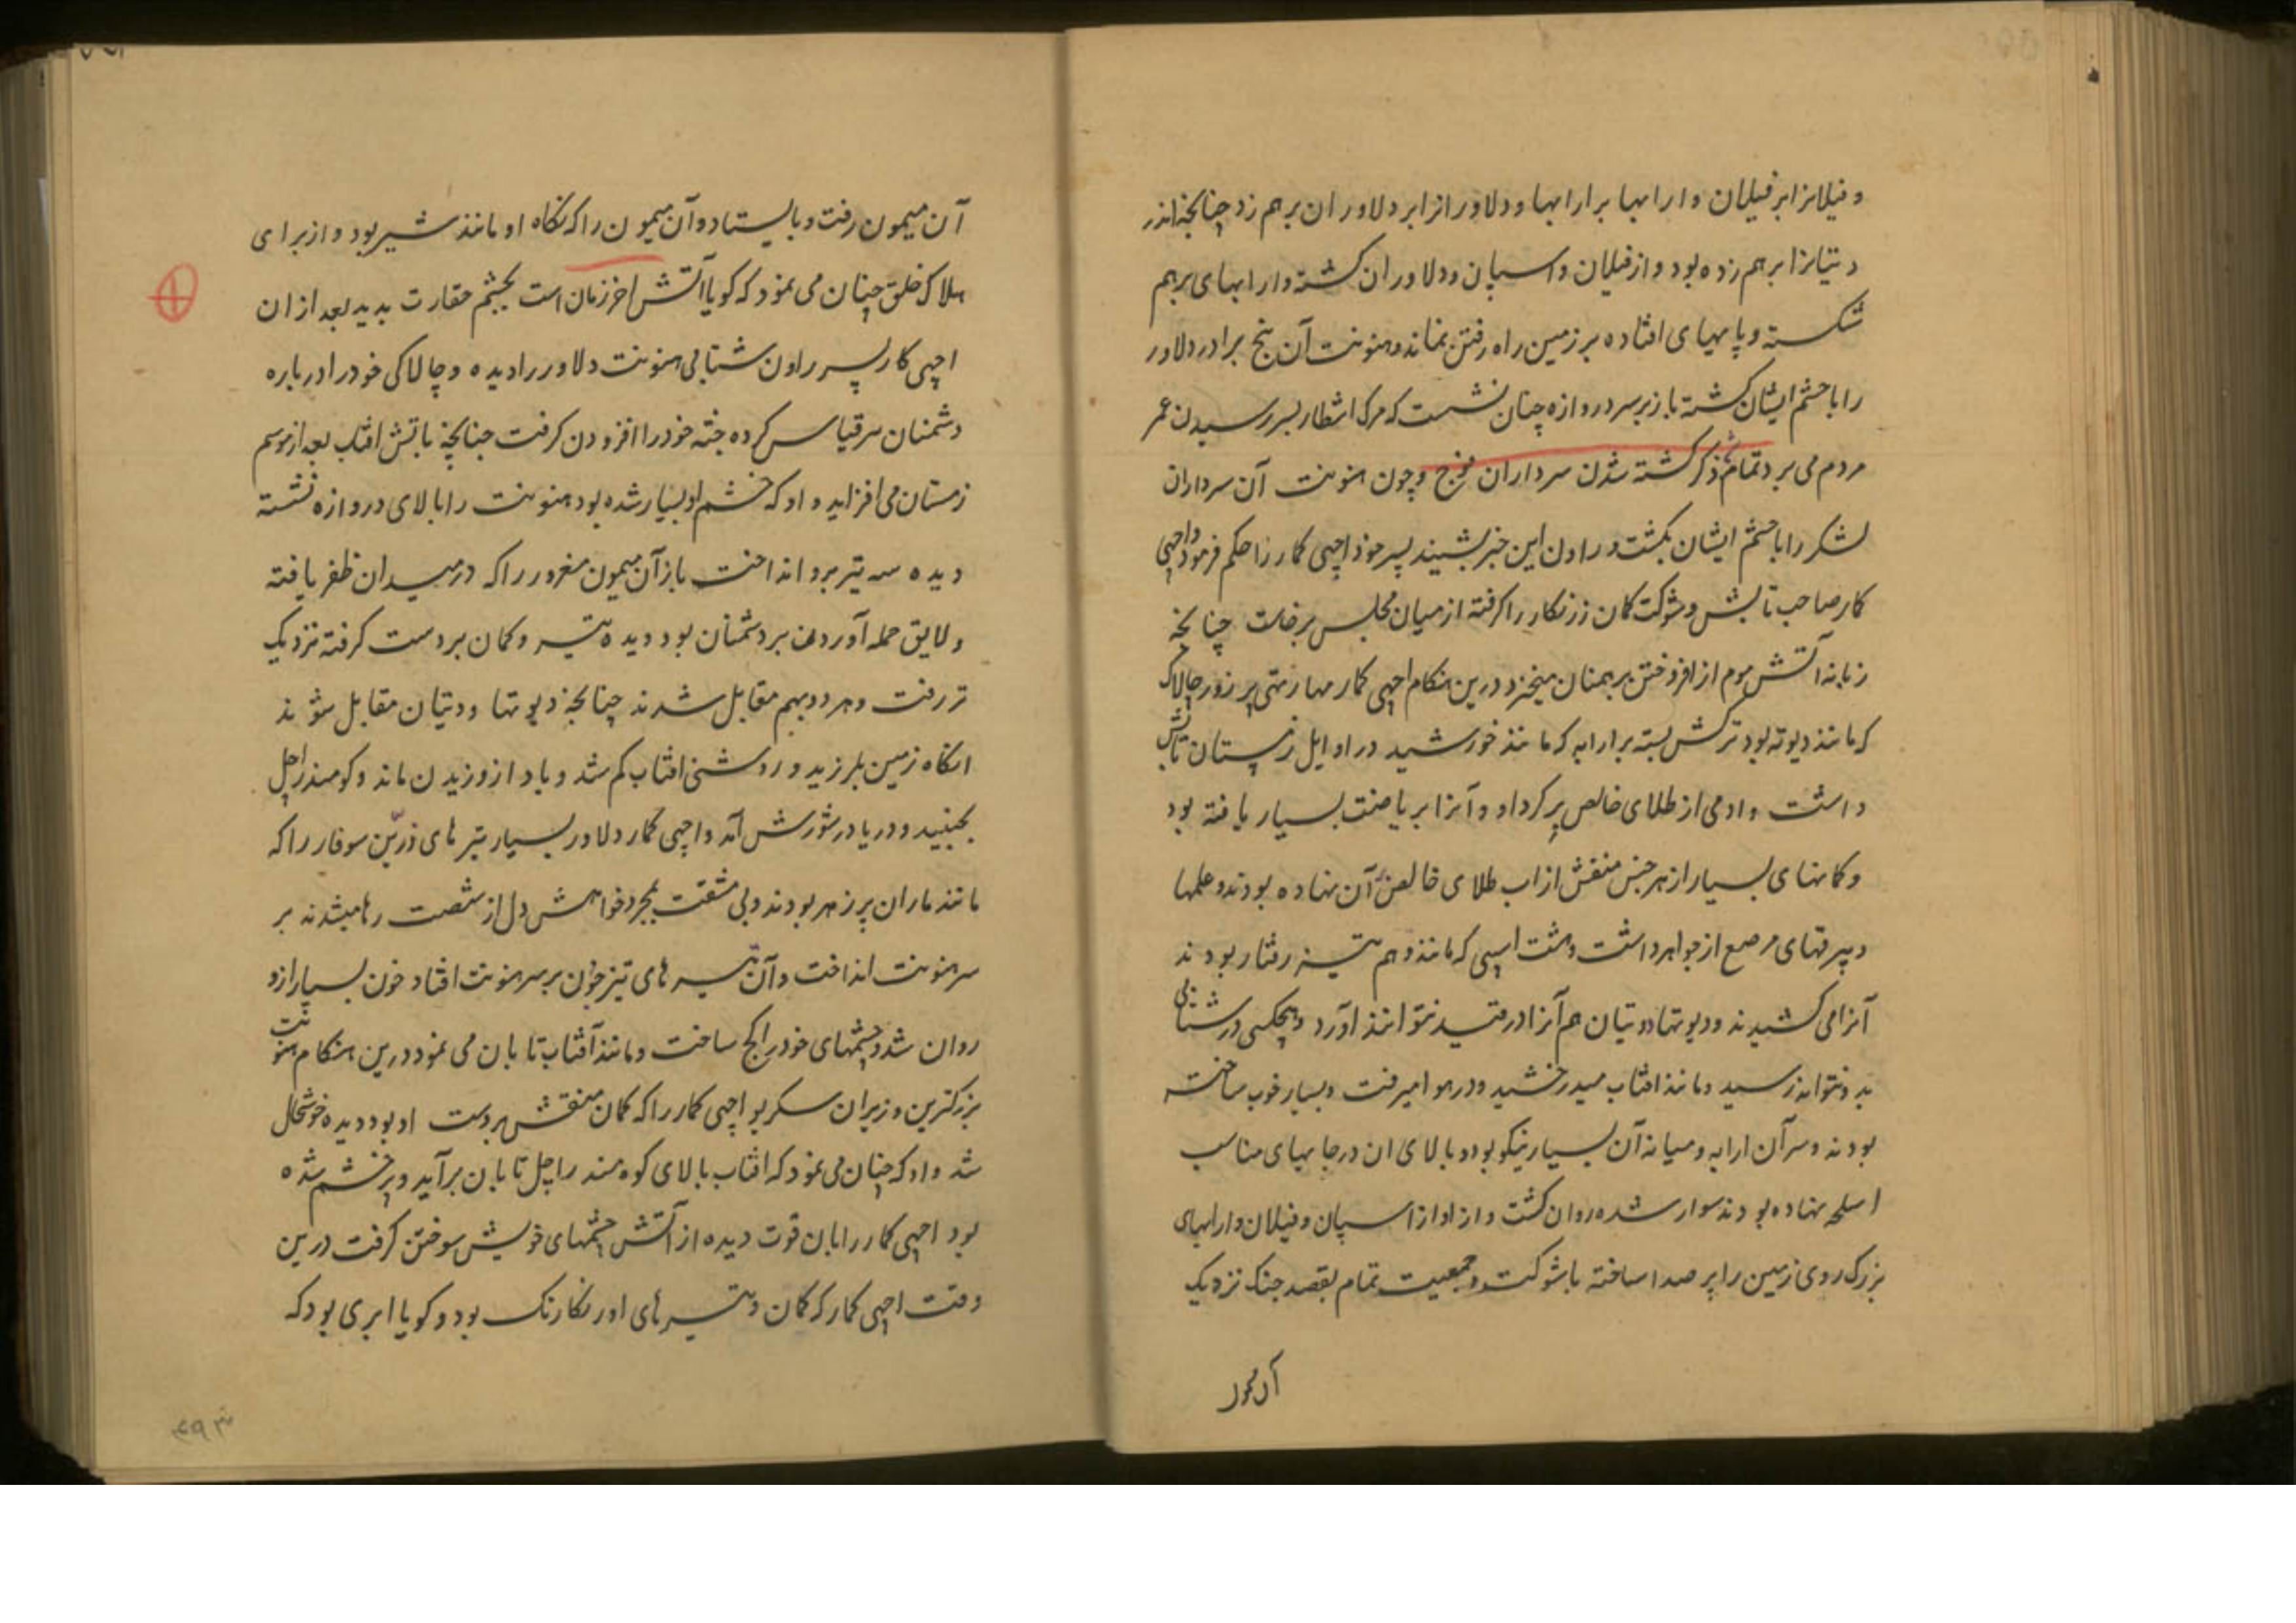 و فیلانرا بر فیلان و ارابها بر ارابها و دلاورانرا بر دلاوران برهم زد چنانچه اندر
دیتیانرا برهم زده بود و از فیلان و اسپان و دلاوران کشته و ارابهای برهم
شکسته و پایهای افتاده بر زمین راه رفتن نماند و هنونت آن پنج برادر دلاور
را با حشم ایشان کشته باز بر سر دروازه چنان نشست که مرک انتظار بسر رسیدن عمر
مردم می برد تمام شد ذکر کشته شدن سرداران فوج و چون هنونت آن سرداران
لشکر را با حشم ایشان بکشت و راون این خبر بشنید پسر خود اچهی کمار را حکم فرمود و اچهی
کمار صاحب تابش و شوکت کمان زرنکار را کرفته از میان مجلس برخاست چنانچه
زبانه آتش هوم از افروختن برهمنان میخیزد درین هنکام اچهی کمار مهارتهی پر زور چالاک
که مانند دیوته بود ترکش بسته بر ارابه که مانند خورشید در اوایل زمستان تابش
داشت و ادمی از طلای خالص پر کرداو و آنرا بریاضت بسیار یافته بود
و کمانهای بسیار از هر جنس منقش از اب طلای خالص آن نهاده بودند و علمها
و بیرقهای مرصع از جواهر داشت و هشت اسپی که مانند وهم تیز رفتار بودند
آنرا می کشیدند و دیوتها و دیتیان هم آنرا در قید نتوانند اورد و هیچکس در شتابی
بدو نتواند رسید و مانند افتاب میدرخشید و در هوا میرفت و بسیار خوب ساخته
بودند و سر آن ارابه و میانه آن بسیار نیکو بود و بالای ان در جایهای مناسب
اسلحه نهاده بودند سوار شده روان کشت و از اواز اسپان و فیلان و ارابهای
بزرک روی زمین را پر صدا ساخته با شوکت و جمعیت تمام بقصد جنک نزدیک
آن میمون رفت و بایستاد و آن میمون را که نکاه او مانند شیر بود و از برای
هلاک خلق چنان می نمود که کویا آتش اخر زمان است بچشم حقارت بدید بعد از ان
اچهی کمار پسر راون شتابی هنونت دلاور را دیده و چالاکی خود را درباره
دشمنان سر قیاس کرده جثه خود را افزودن کرفت چنانچه تابش افتاب بعد از موسم
زمستان می افزاید و او که خشم او بسیار شده بود هنونت را بالای دروازه نشسته
دیده سه تیر برو انداخت باز آن میمون مغرور را که در میدان ظفر یافته
و لایق حمله آوردن بر دشمنان بود دیده تیر و کمان بر دست کرفته نزدیک
تر رفت و هر دو بهم مقابل شدند چنانچه دیوتها و دیتیان مقابل شوند
انکاه زمین بلرزید و روشنی افتاب کم شد و باد از وزیدن ماند و کوه مندراچل
بجنبید و دریا در شورش آمد و اچهی کمار دلاور بسیار تیر های زرین سوفار را که
مانند ماران پر زهر بودند و بی مشقت بمجرد خواهش دل از شصت رها میشدند بر
سر هنونت انداخت و آن تیر های تیز چون بر سر هنونت افتاد خون بسیار ازو
روان شد و چشمهای خود را کج ساخت و مانند آفتاب تابان می نمود درین هنکام هنونت
بزرکترین وزیران سکریو اچهی کمار را که کمان منقش بر دست او بود دیده خوشحال
شد و او که چنان می نمود که افتاب بالای کوه مندراچل تابان برآید و پر خشم شده
بود اچهی کمار را بان قوت دیده از آتش چشمهای خویش سوختن کرفت درین
وقت اچهی کمار که کمان و تیر های او رنکارنک بود و کویا ابری بود که